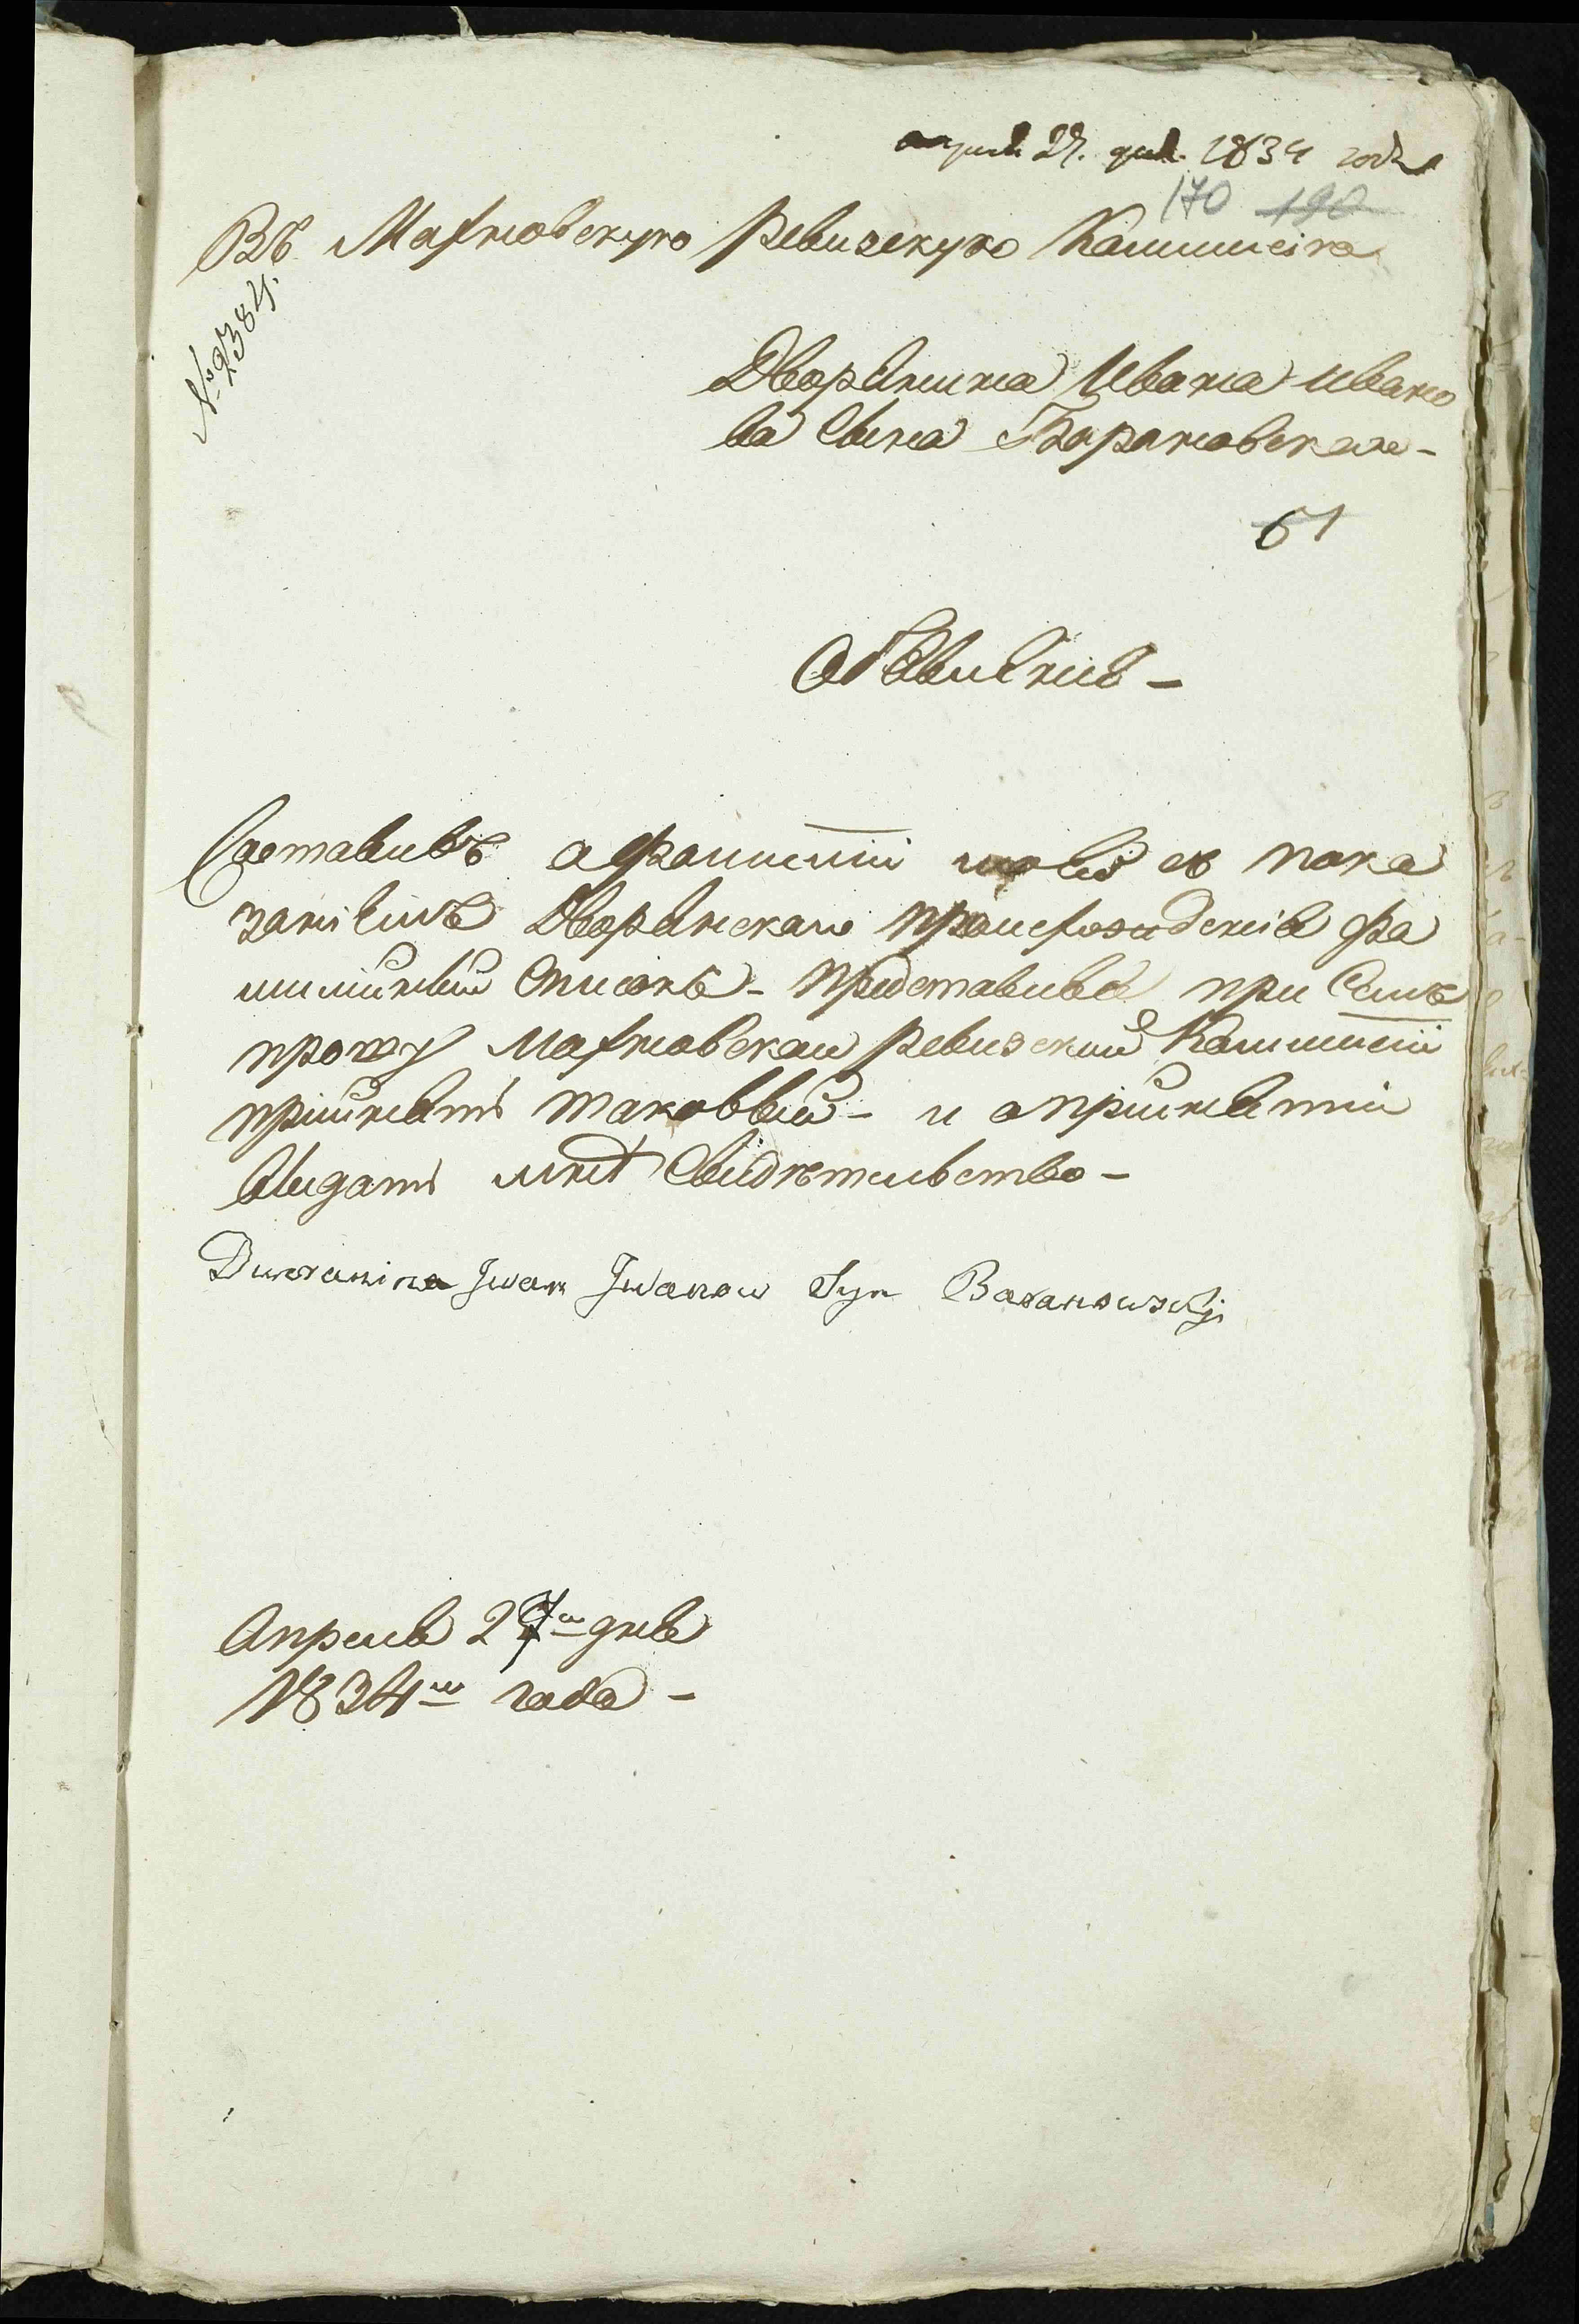 апреля 27. дня. 1834 года
170 190
Въ Махновскую Ревизскую Коммисію
№ 2384.
Дворянина Ивана Ивано
ва Сына Барановскаго -
61
Обявленіе -
Составивъ о фамиліи моей съ пока
заніемъ Дворянскаго происхожденія фа
милійный списокъ - представивъ при семъ
прошу Махновской Ревизской Коммисіи
прійнять таковвый - и опрійнятіи
выдать мнѣ Свидѣтельство -
Dworanina Jwan Jwanow Syn Baranowskji
Апреля 27го дня
1834го года -